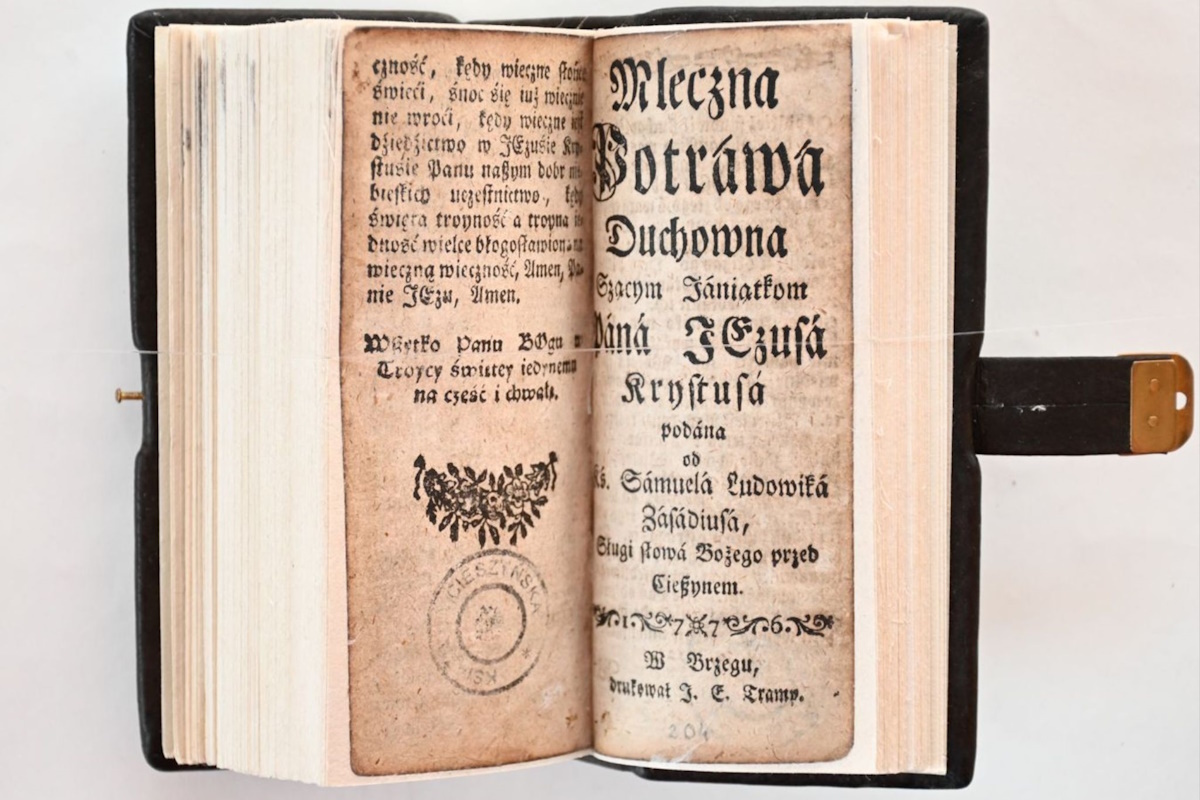 czność, kędy wieczne słońce
świeći, śnoc śię iuż wiecznie
nie wroći, kędy wieczne iest
dźiedźictwo w JEzuśie Kry-
stuśie Panu naszym dobr nie-
bieskich uczestnictwo, kędy
święta troyność a troyna ie-
dność wielce błogosławiona na
wieczną wieczność, Amen, Pa-
nie JEzu, Amen.
Wszytko Panu BOgu w
Troycy świętey iedynemu
na cześć i chwałę.
CIESZYŃSKA
KSI
Mleczna
Potráwá
Duchowna
Szącym Jániątkom
Páná JEzusá
Krystusá
podána
od
Kś. Sámuelá Ludowiká
Zásádiusá,
Sługi słowá Bożego przed
Cieszynem.
1776.
W Brzegu,
drukował J. E. Tramp.
204